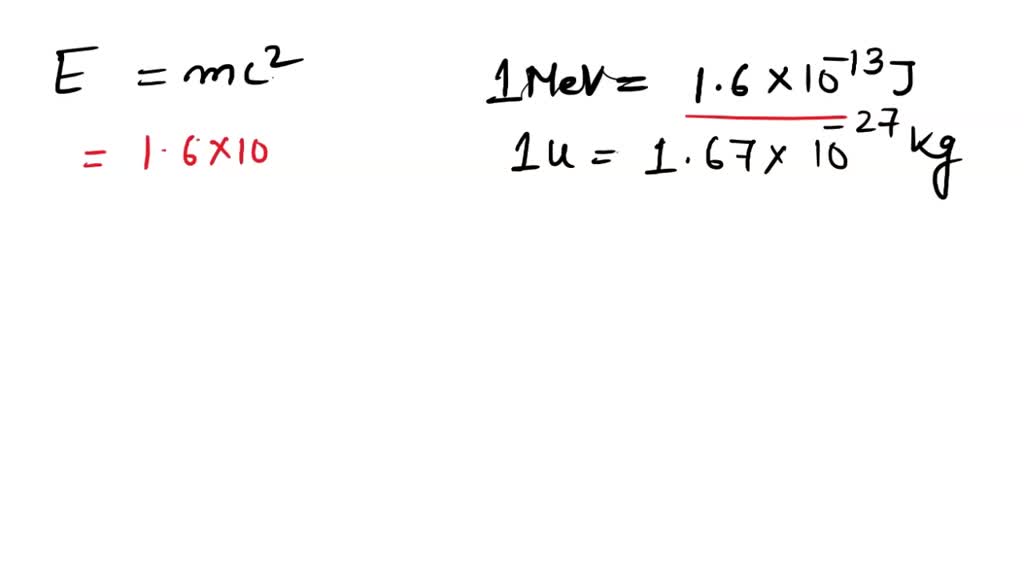 E = mc²
= 1.6×10
1MeV = 1.6×10⁻¹³J
1u = 1.67×10⁻²⁷kg